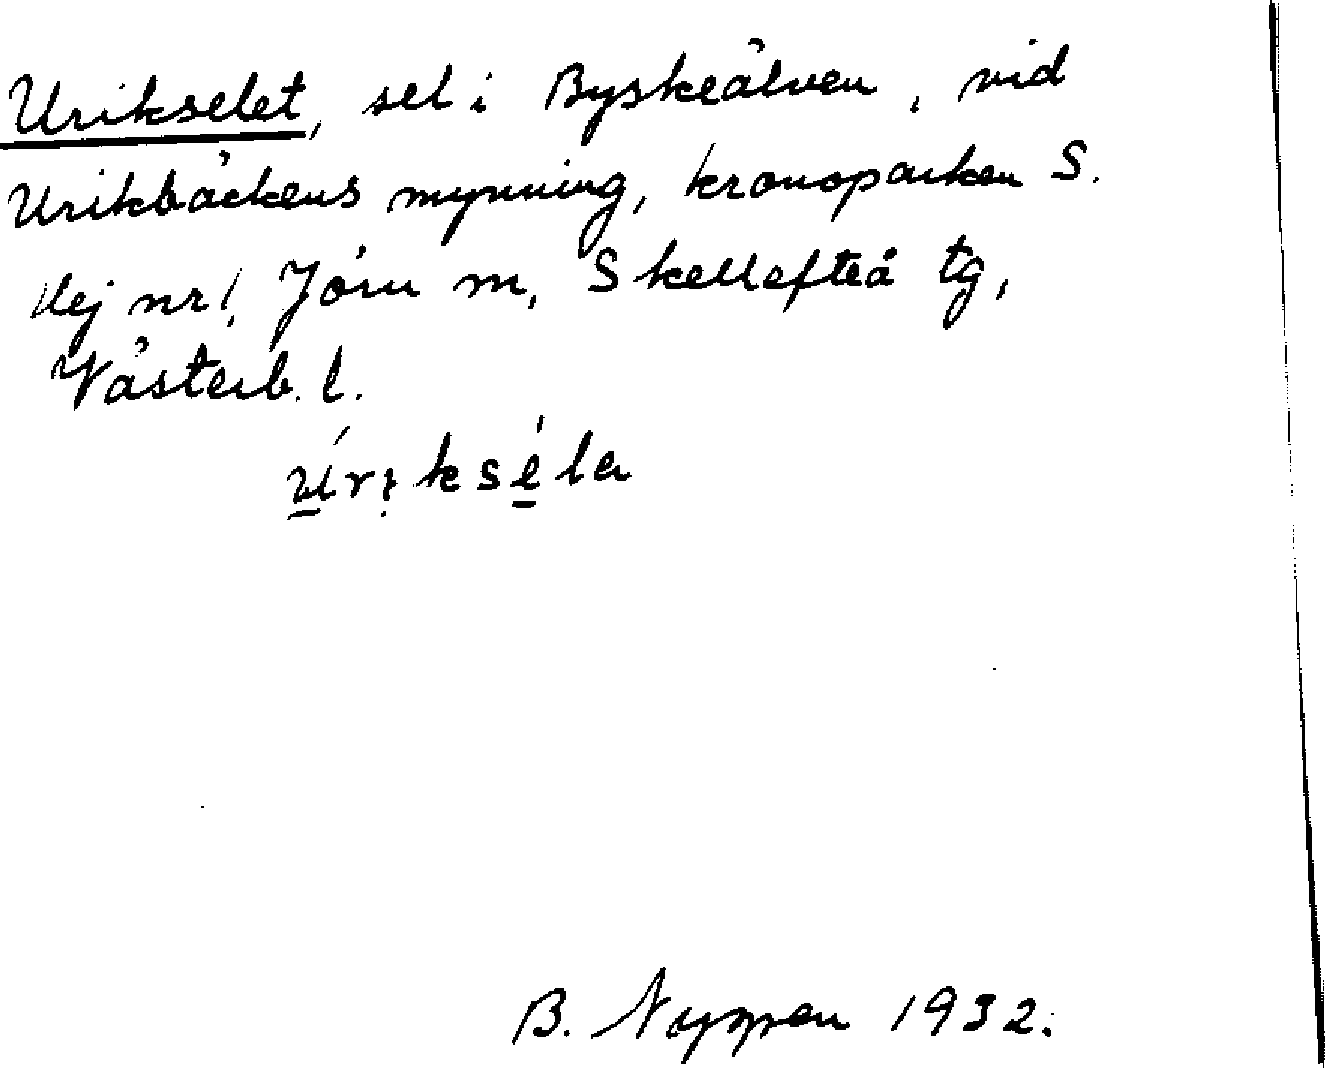 Urikselet, sel i Byskeälven, vid
Urikbäckens mynning, kronoparken S.
nr 1, Jörn m, Skellefteå tg,
Västerb. l.
úrikséla
B. Nyman 1932.